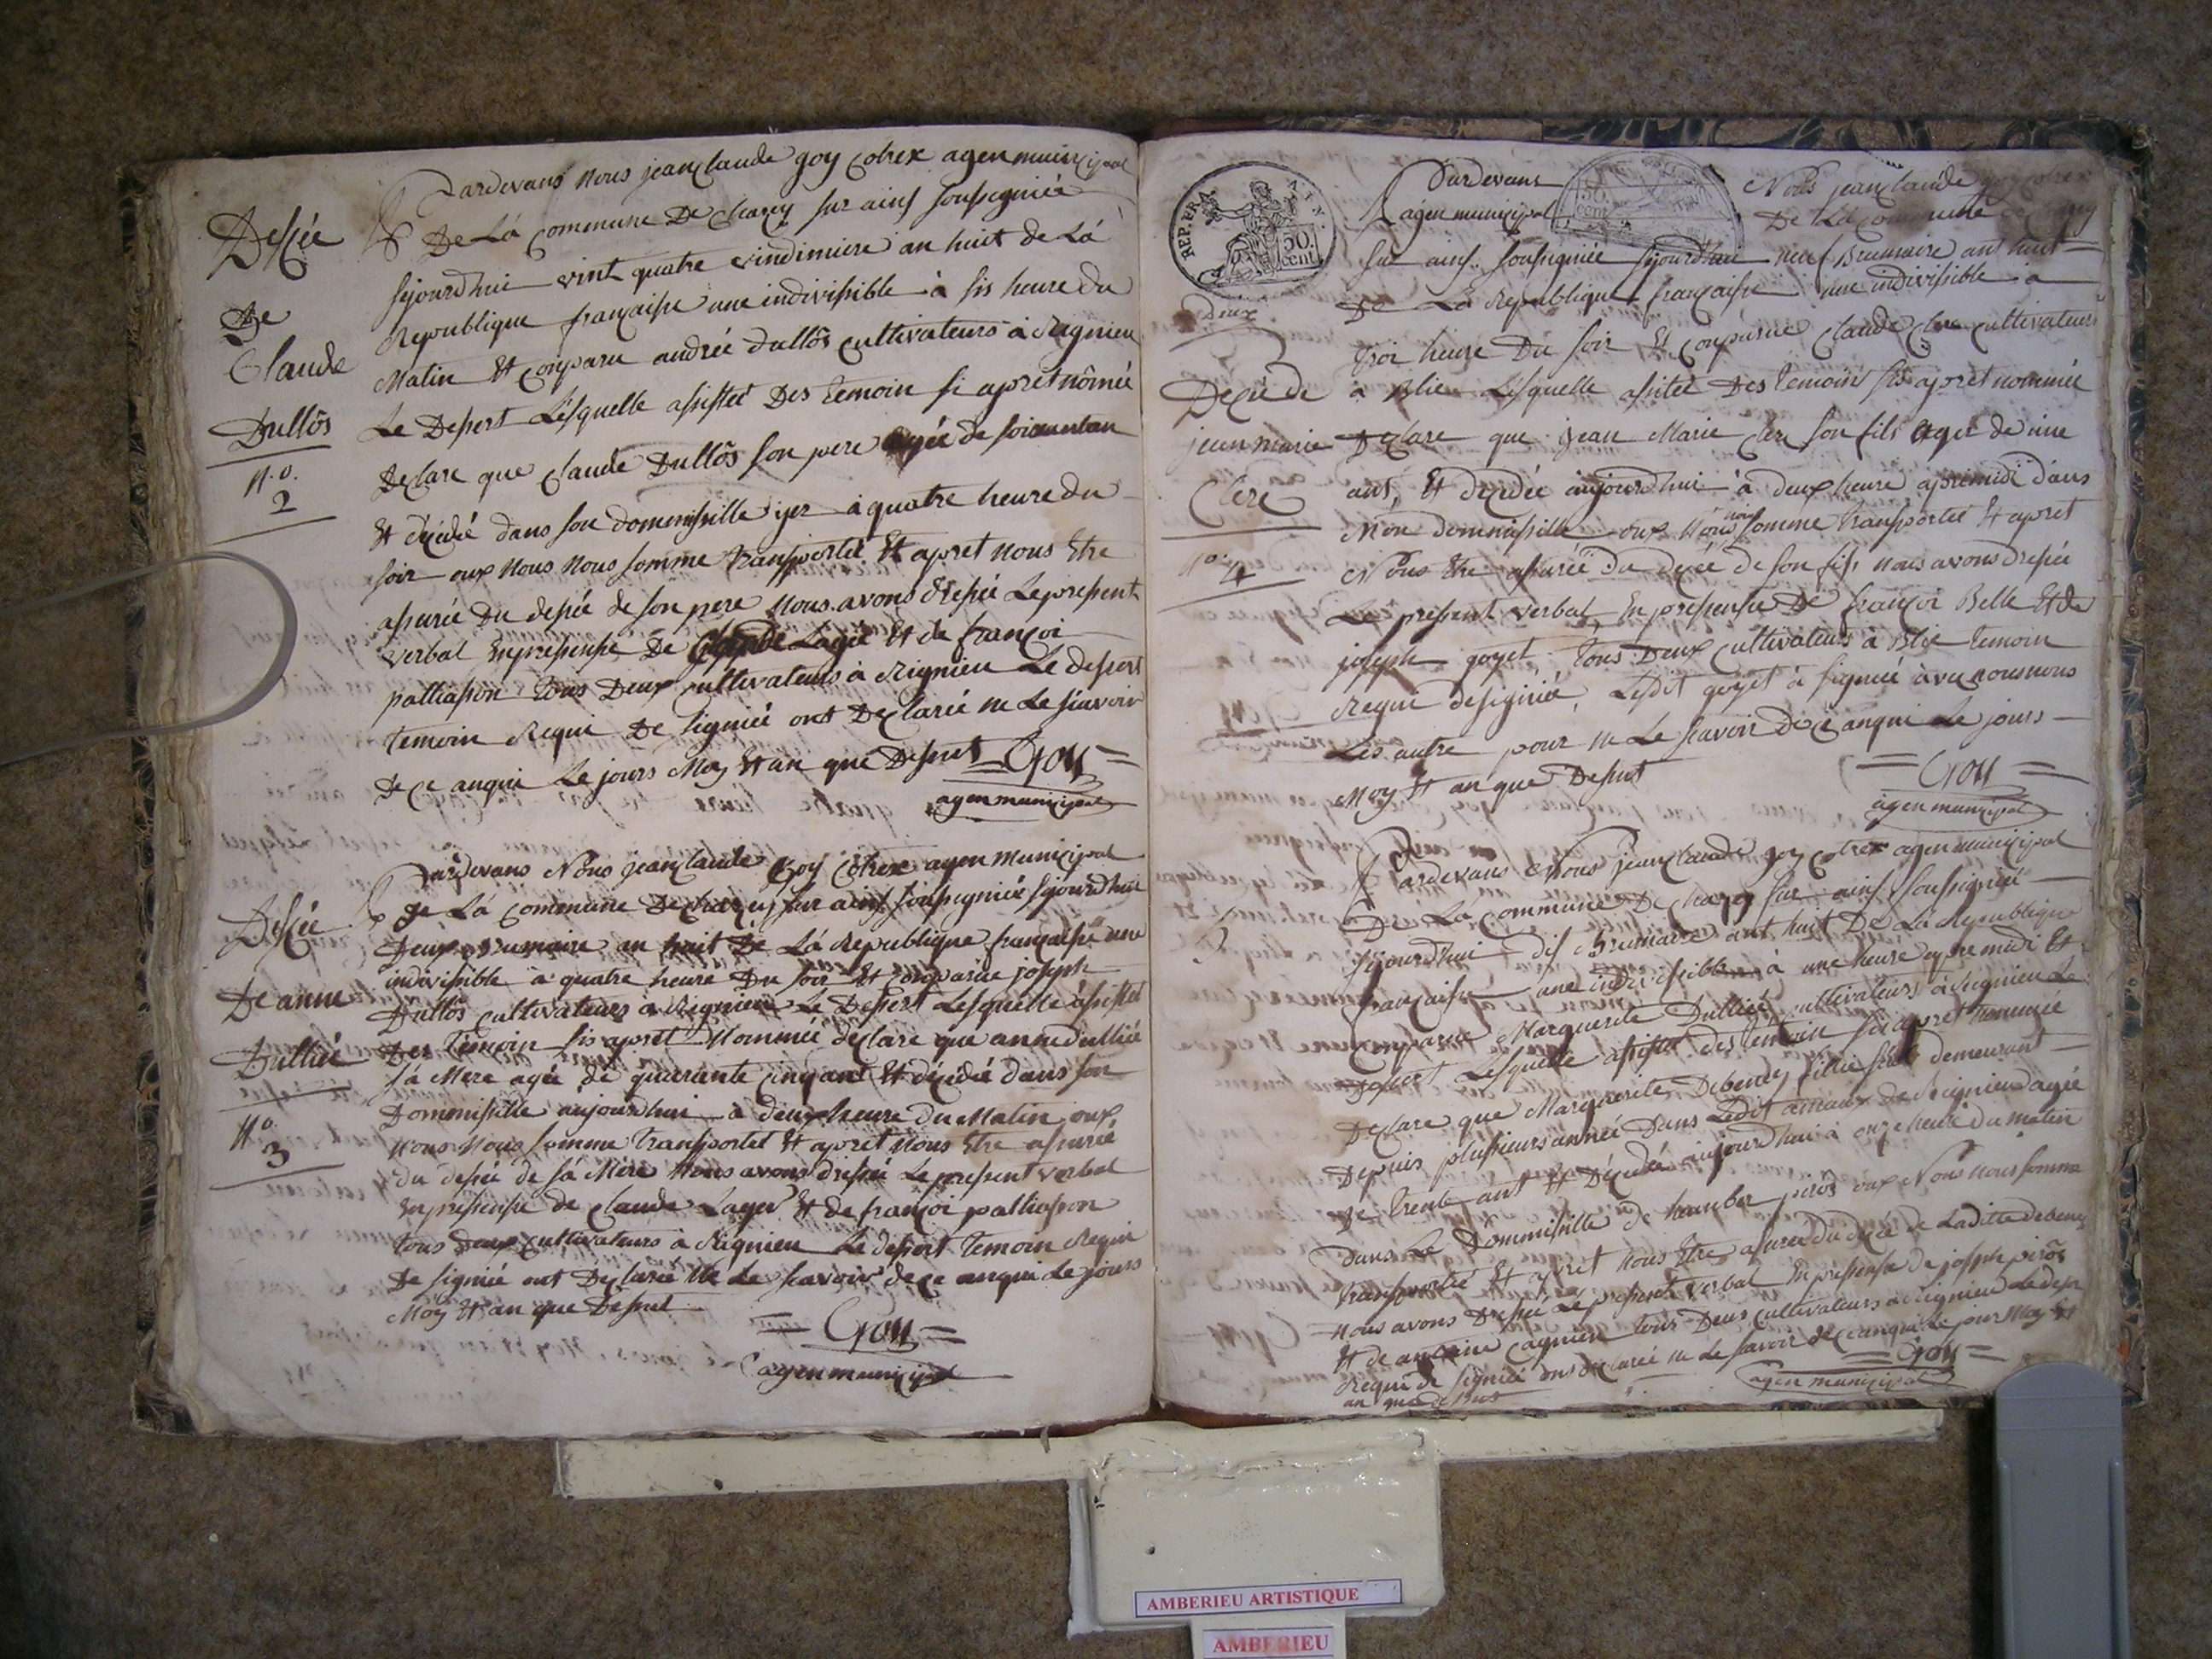 Pardevans nous jean claude goy cohex agen municipal
De Lá commune De charey sur ains soussigniée
sejourdhui vint quatre vindimiere an huit de Lá
Republique française une indivisible à sis heure du
Matin Et conparu andrée dullôs cultivateurs à Rignieu
Le Desert Lésquelle assistée Des temoin si apret nômée
Declare que claude Dullôs son pere agée de soisantan
Et décédé dans son dommissille yer à quatre heure du
soir oux nous nous somme transportée Et apret nous Etre
assurée Du dessée de son pere nous avons dressée Le present
verbal En pressense De Claude Lagée Et de françoi
palliasson tous Deux cultivateurs à Rignieu Le dessert
temoin Requi De signiée ont Declarée ne Le sçavoir
de ce anqui Le jours Moy Et an que Desut = Goy =
agen municipal
Dessée
De
Claude
Dullôs
N.o.
2
Pardevans Nous jean claude Goy Cohex agen municipal
De Lá commune De charey sur ains soussigniée sejourdhui
Deux Brumaire an huit De Lá Republique française une
indivisible à quatre heure Du soir Et conparue joseph
Dullôs cultivateurs à Rignieu Le Dessert Lesquelle assistée
Des temoin sis apret Nommée declare que anne dulliée
sá Mere agée de quarante cinq ant Et décédé dans son
Dommissille aujourdhui à deux heure du Matin oux
nous nous somme transportet Et apret nous Etre assurée
du dessée de sá Mére nous avons dressée Le pressent verbal
En pressense de claude Lager Et de françoi palliasson
tous deux cultivateurs à Rignieu Le dessert temoin Requi
De signiée ont Declarée Ne Le scavoir de ce anqui Le jours
Moy Et an que Desut
= Goy =
agen municipal
Dessée
De anne
Dulliée
No.
3
REP. FRA
50.
cent
deux
Pardevans Nous jean claude goy cohex
agen municipal De Lá commune
sur ains soussigniée sejourdhui neuf Brumaire ant huit
De Lá Republique française une indivisible à
troi heure Du soir Et conparue claude clere cultivateurs
à Blie Lesquelle assitée Des temoins sis apret nommée
Declare que jean Marie clere son fils ager de une
ant, Et décédée aujourdhui à deux heure apremidi dans
Mon dommissille oux Nous nous somme transportet Et apret
Nous Etre assurée du décée de son fils nous avons dressée
Le present verbal En pressense De françoi Belle Et de
joseph goyet tous Deux cultivateurs à Blie temoin
Requi designiée, Ledit goyet à signiée avec nous nous
Les autre pour ne Le scavoir De ce anqui Le jours
Moy Et an que Desut
= Goy =
agen municipal
Decée de
jean marie
Clere
No.
4
Pardevans Nous jean claude goy cohex agen municipal
De Lá commune De charey sur ains soussigniée
sejourdhui dis Brumaire ant huit De Lá Republique
française une indivissible à une heure apremidi Et
Conparue Marguerite Dulliée cultivateurs à Rignieu Le
Dessert Lesquelle assistée des temoin sis apret nommée
Declare que Marguerite Debeney fillie demeurant
Depuis plusieurs année Dans Ledit ameaux De Rignieu agée
De trente ant Et Décédée aujourdhui à onze heure du matin
Dans Le Dommissille De humber pirôs oux Nous nous somme
transportée Et apret nous Etre assurée du décée de Laditte debeney
nous avons Dressée Le present verbal En pressense De joseph pirôs
Et de antoine cagnieu tous Deux cultivateurs à Rignieu Le dessert
Requi de signiée ont declarée ne Le savoir de ce anqui Le jour Moy Et
an que desut
= Goy =
agen municipal
5
AMBERIEU ARTISTIQUE
AMBERIEU